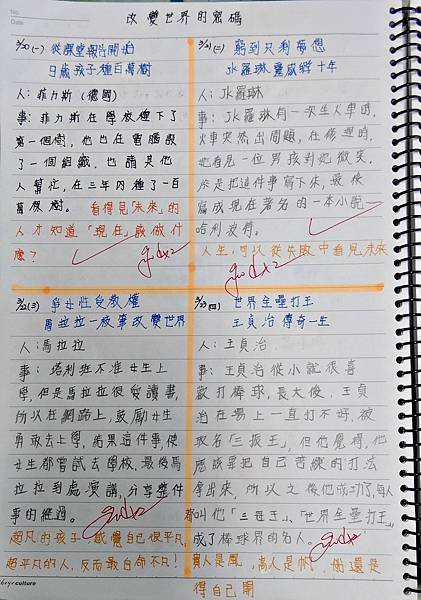 No.
Date
改變世界的密碼
3/20(一) 從課堂報告開始
9歲孩子種百萬樹
人：菲力斯(德國)
事：菲力斯在學校種下了
第一個樹，他也在電腦設
了一個組織，也請其他
人幫忙，在三年內種了一百
萬棵樹。 看得見「未來」的
人才知道「現在」該做什
麼？
good x2
3/21(二) 窮到只剩夢想
JK羅琳靈感孵十年
人：JK羅琳
事：JK羅琳有一次坐火車時，
火車突然出問題，在修理時，
她看見一位男孩對她微笑，
於是把這件事寫下來，最後
寫成現在著名的一本小說—
哈利波特。
人生，可以從失敗中看見未來
good x2
3/22(三) 爭女性受教權
馬拉拉一故事改變世界
人：馬拉拉
事：塔利班不准女生上
學，但是馬拉拉很愛讀書，
所以在網路上，鼓勵女生
勇敢去上學，結果這件事，使
女生都嘗試去學校，最後馬
拉拉到處演講，分享整件
事的經過。
good x2
超凡的孩子，感覺自己很平凡，
超平凡的人，反而最自命不凡！
3/23(四) 世界全壘打王
王貞治傳奇一生
人：王貞治
事：王貞治從小就很喜
歡打棒球，長大後，王貞
治在場上一直打不好，被
取名「三振王」，但他覺得，他
應該要把自己苦練的打法
拿出來，所以之後他成功了，每人
都叫他「三冠王」、「世界全壘打王」，
成了棒球界的名人。
good x2
別人是風，高人是帆，船還是
得自己開
culture